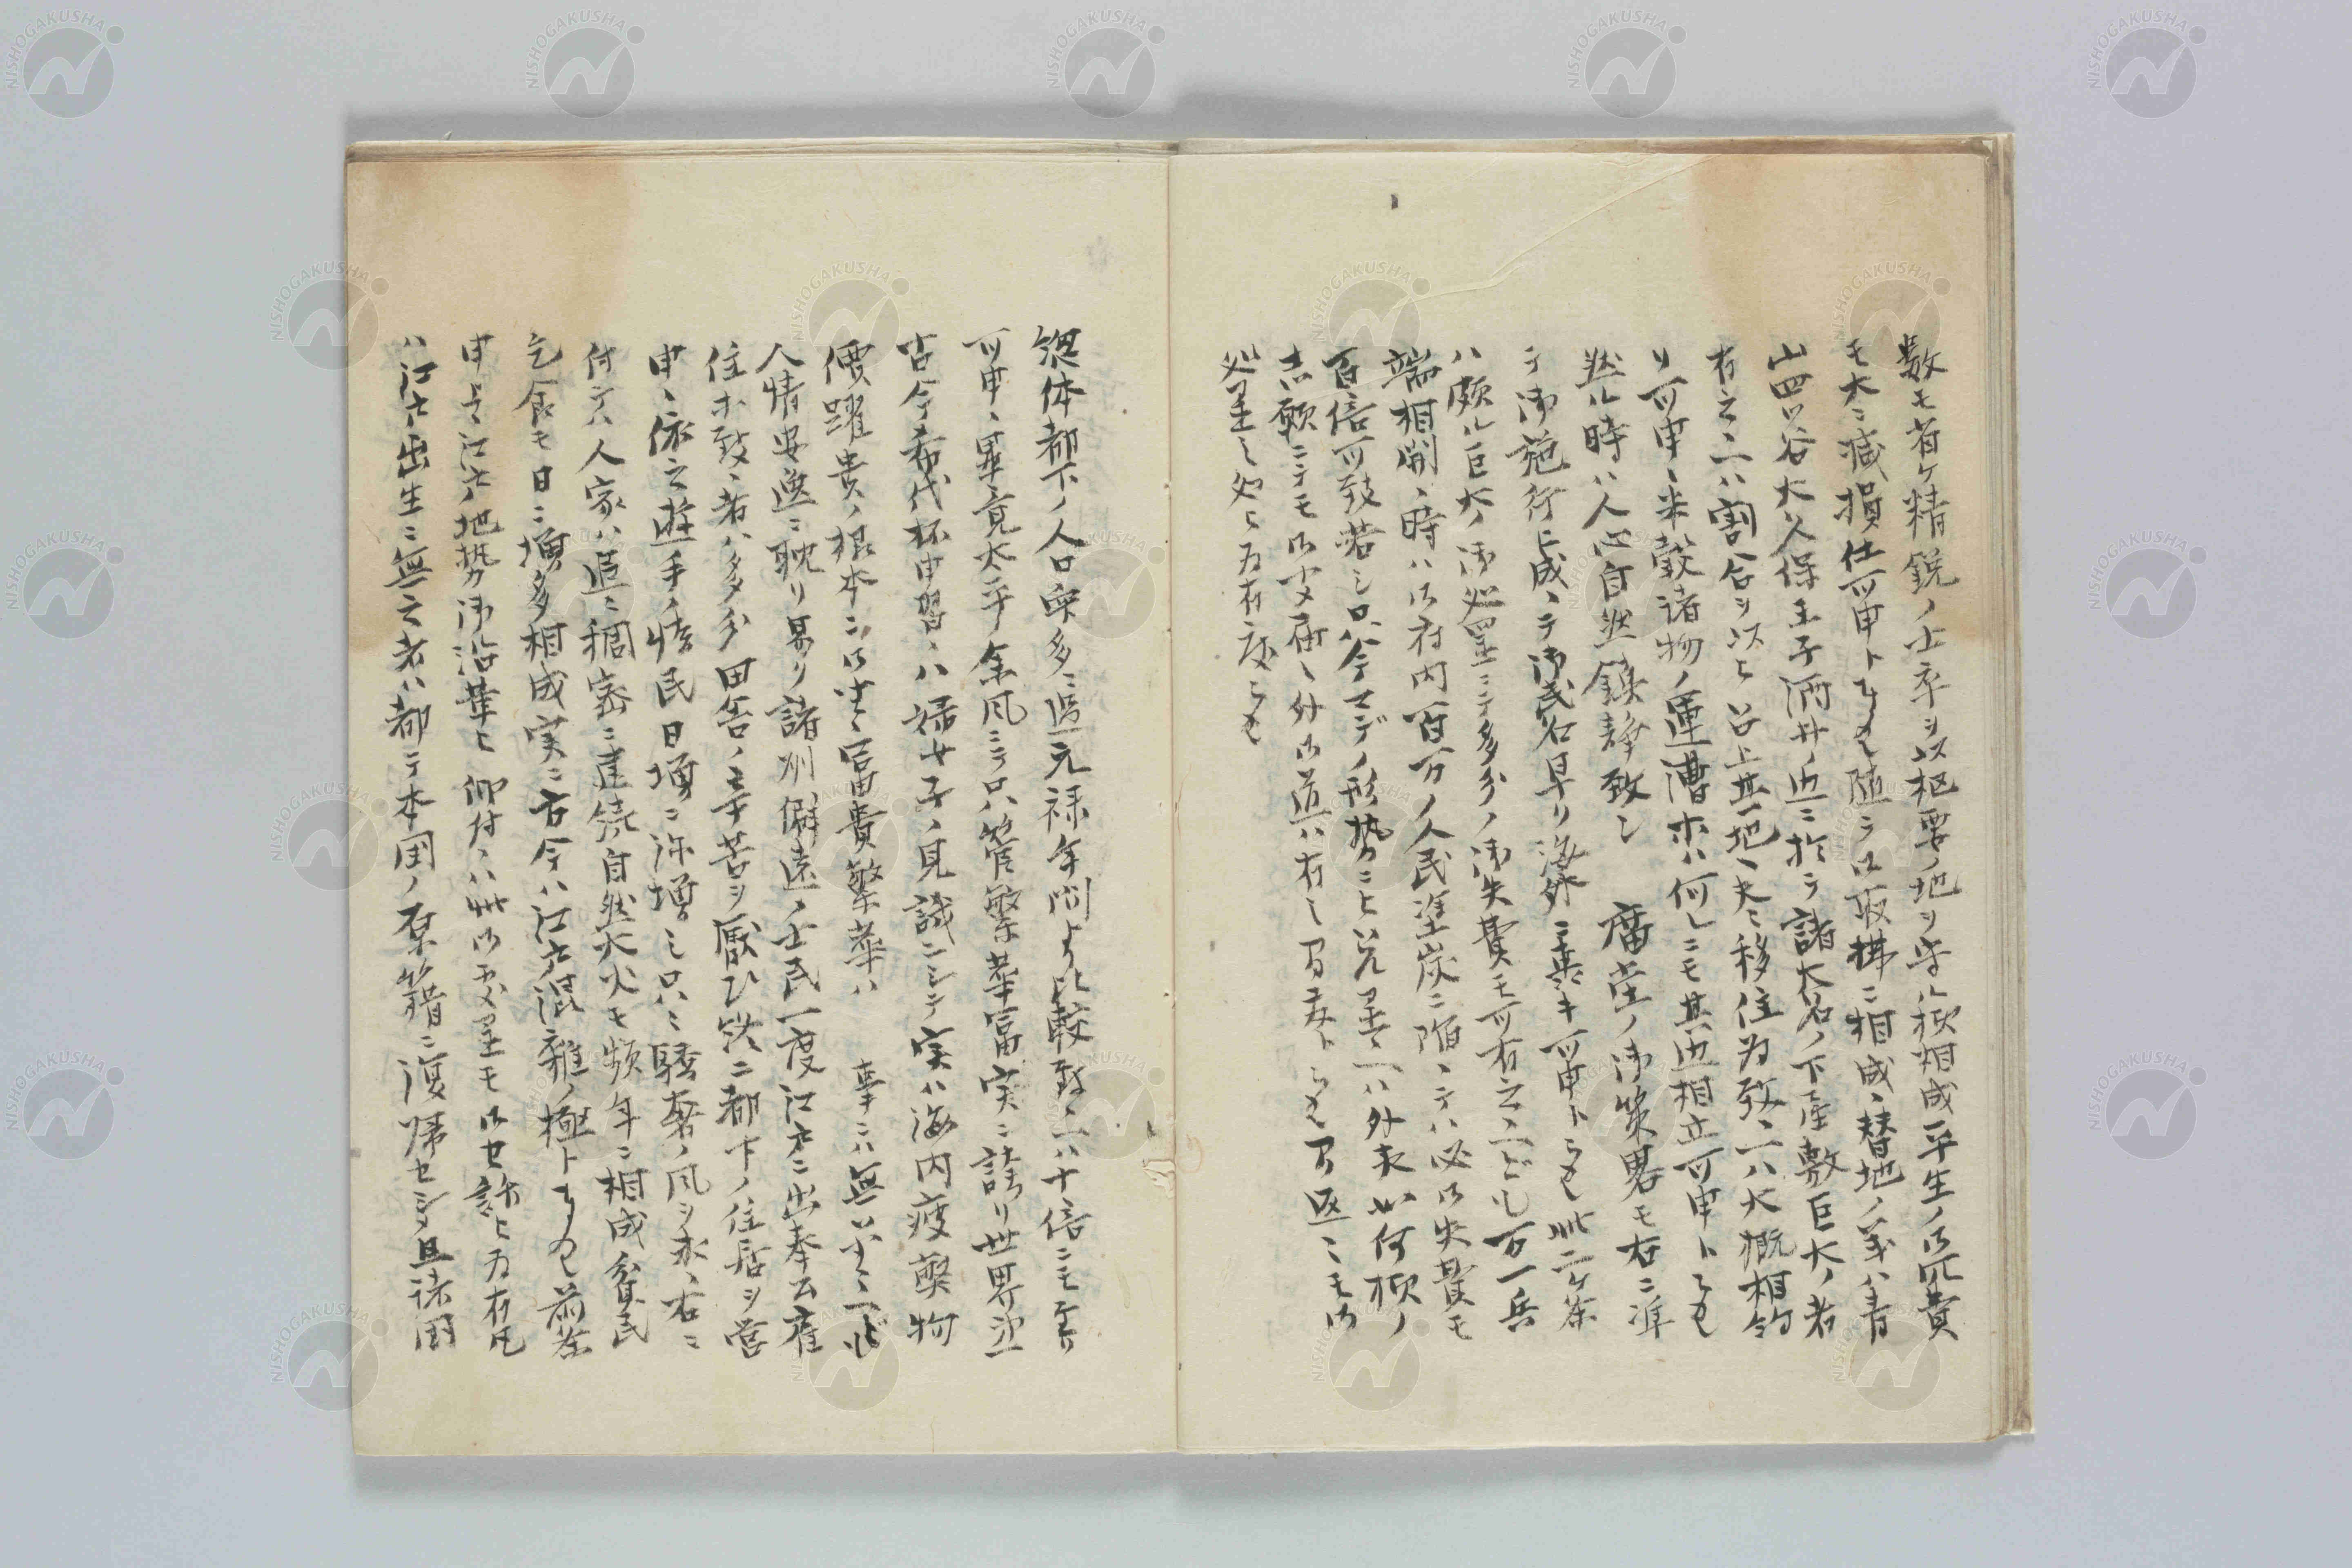 数モ省ケ精鋭ノ士卒ヲ以枢要ノ地ヲ守ル様相成平生ノ御冗費
モ大ニ減損仕可申ト奉存候随テ御取拂ニ相成候替地ノ義ハ青
山四ツ谷大久保王子酒井ノ辺ニ於テ諸大名ノ下屋敷巨大ノ者
有之候ヘハ割合ヲ以被召上其地ヘ夫々移住為致候ヘハ大概相当
リ可申候米穀諸物ノ運漕ホハ何レニモ其辺相立可申ト奉存候
然ル時ハ人心自然鎮静致シ 廟堂ノ御策畧モ右ニ準
テ御施行ニ成候テ御武名早リ海外ニ輝キ可申ト奉存候此二ケ条
ハ頗ル巨大ノ御処置ニテ多分ノ御失費モ可有之候ヘ共万一兵
端相開候時ハ御府内百万ノ人民塗炭ニ陥候テハ必御失費モ
百倍可致若シ只今マデノ形勢ニ被差置候ヘハ外夷如何様ノ
志願ニテモ御聞届ノ外御道ハ有之間敷ト奉存候間返々モ御
処置之処被為在度奉存候
総体都下ノ人口衆多ニ過元禄年間より比較致候ヘハ十倍ニモ至リ
可申候畢竟太平ノ余風ニテ只管繁華富実ニ誇リ世界第一
古今希代杯申習候ハ婦女子ノ見識ニシテ実ハ海内疲弊物
價躍貴ノ根本ニ御坐候富貴繁華ハ 事ニハ無御坐候ヘ共
人情安逸ニ耽リ易ク諸州僻遠ノ士民一度江戸ニ出奉公雇
住ホ致候者ハ多分田舎ノ辛苦ヲ厭ひ終ニ都下ノ住居ヲ営
申候依之遊手ノ惰民日増ニ弥増シ只々驕奢ノ風ヲ求候右ニ
付テハ人家ハ追々稠密ニ建続自然大火モ頻年ニ相成貧民
乞食モ日ニ増多相成実ニ古今ハ江戸混雑ノ極ト奉存候前等
申上候江戸ノ地勢御沿革被仰付候ハ此御処置モ御世話被為在凡
ハ江戸出生ニ無之者ハ都テ本国ノ原籍ニ復帰セシメ且諸国